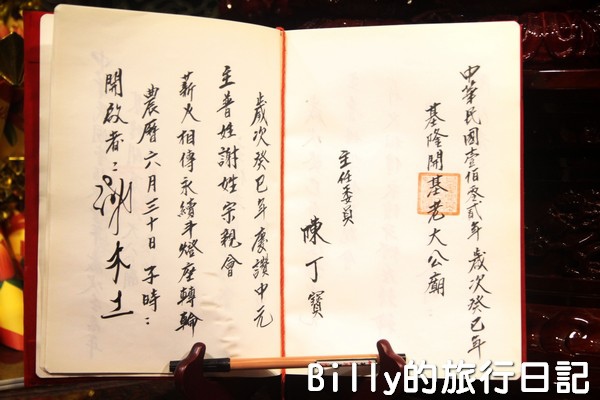 中華民國壹佰零貳年歲次癸巳年
基隆開基老大公廟
主任委員
陳丁寶
歲次癸巳年慶讚中元
主普姓謝姓宗親會
薪火相傳永續斗燈座轉輪
農曆六月三十日子時：
開啟者：謝木土
Billy的旅行日記